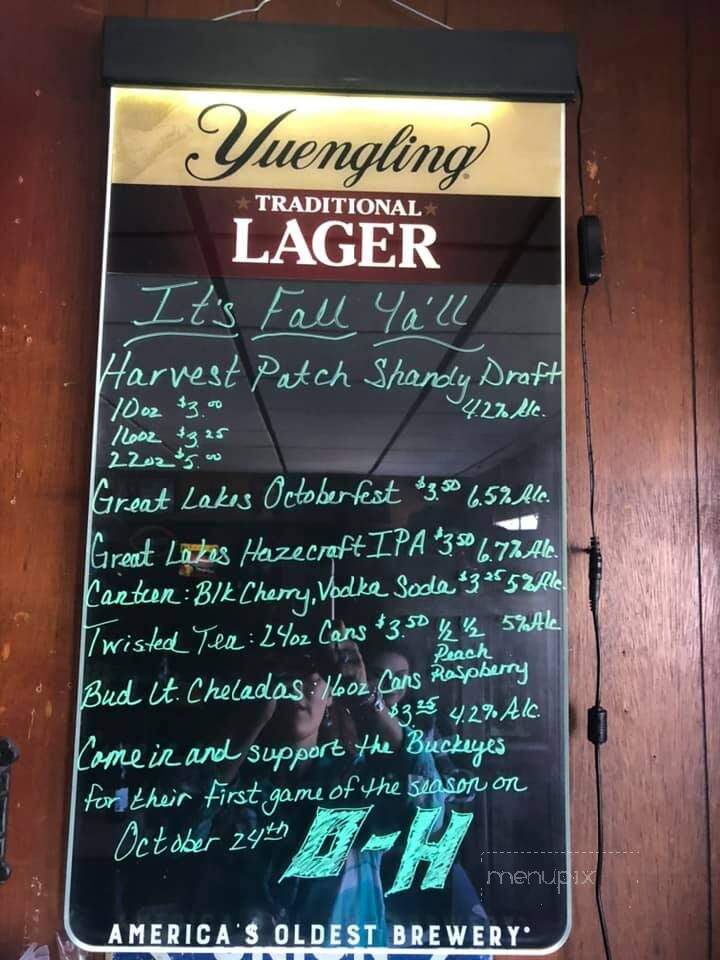 Yuengling®
TRADITIONAL
LAGER
It's Fall Ya'll
Harvest Patch Shandy Draft
10oz $3.00 4.2% Alc.
16oz $3.25
22oz $5.00
Great Lakes Octoberfest $3.50 6.5% Alc.
Great Lakes Hazecraft IPA $3.50 6.7% Alc.
Canteen: Blk Cherry, Vodka Soda $3.25 5% Alc.
Twisted Tea: 24oz Cans $3.50 ½ ½ 5% Alc
Peach
Raspberry
Bud Lt. Cheladas: 16oz Cans
$3.25 4.2% Alc.
Come in and support the Buckeyes
for their first game of the season on
October 24th O-H
menupix
AMERICA'S OLDEST BREWERY®